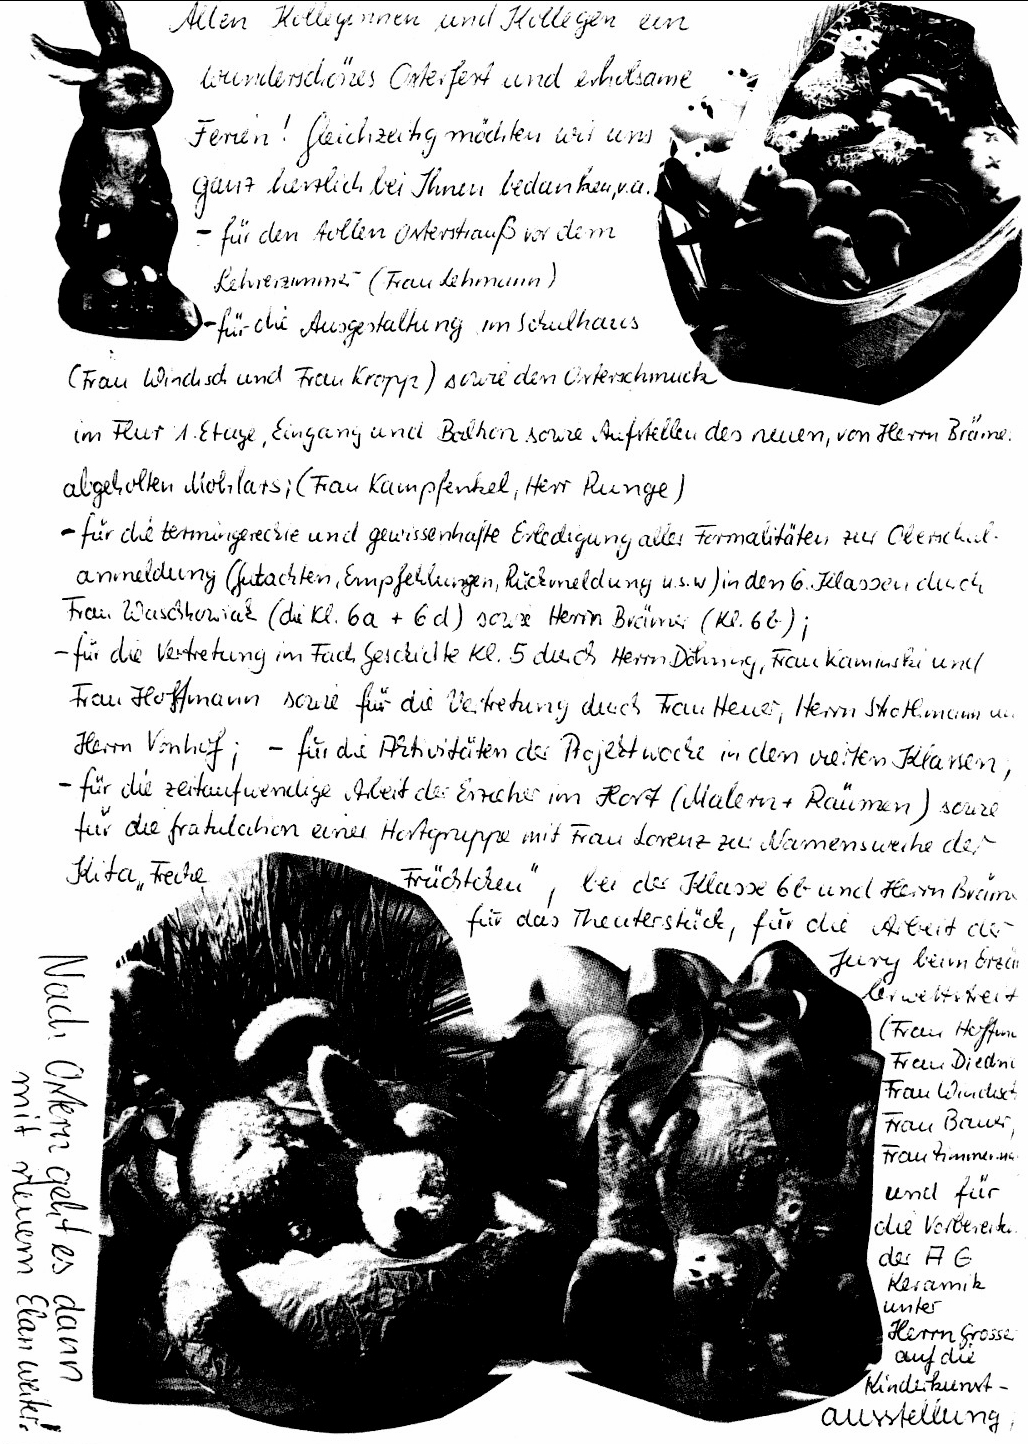 Allen Kolleginnen und Kollegen ein
wunderschönes Osterfest und erholsame
Ferien! Gleichzeitig möchten wir uns
ganz herzlich bei Ihnen bedanken, v.a.
- für den tollen Osterstrauß vor dem
Lehrerzimmer (Frau Lehmann)
- für die Ausgestaltung im Schulhaus
(Frau Windisch und Frau Kropp) sowie den Osterschmuck
im Flur 1. Etage, Eingang und Balkon sowie Aufstellen des neuen, von Herrn Bräme
abgeholten Mobilars; (Frau Kampfenkel, Herr Runge)
- für die termingerechte und gewissenhafte Erledigung aller Formalitäten zur Oberschul-
anmeldung (Gutachten, Empfehlungen, Rückmeldung u.s.w) in den 6. Klassen durch
Frau Waschkowiak (die Kl. 6a + 6d) sowie Herrn Brämer (Kl. 6b);
- für die Vertretung im Fach Geschichte Kl. 5 durch Herrn Döhring, Frau Kaminski und
Frau Hoffmann sowie für die Vertretung durch Frau Heuer, Herrn Strothmann un
Herrn Vonhof; - für die Aktivitäten der Projektwoche in den vierten Klassen;
- für die zeitaufwendige Arbeit der Erzieher im Hort (Malern + Räumen) sowie
für die Gratulation einer Hortgruppe mit Frau Lorenz zur Namensweihe der
Kita „Freche Früchtchen", bei der Klasse 6b und Herrn Bräm
für das Theaterstück, für die Arbeit der
Jury beim Erzäh
lerwettstreit
(Frau Hoffm
Frau Diedri
Frau Windisch
Frau Bauer,
Frau Zimmerma
und für
die Vorbereitu
der AG
Keramik
unter
Herrn Grosse
auf die
Kinderkunst-
ausstellung;
Nach Ostern geht es dann
mit neuem Elan weiter!